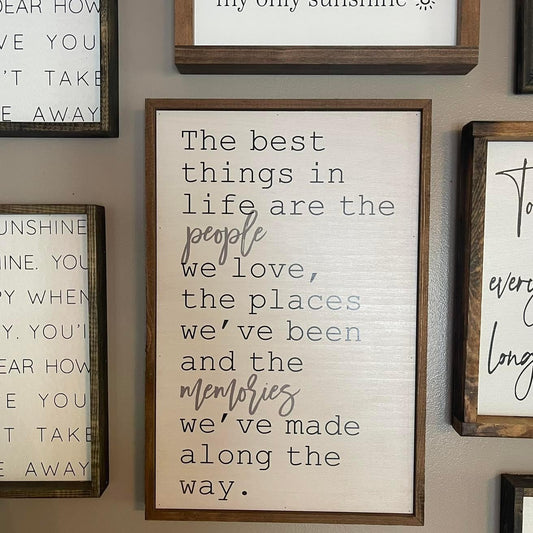 DEAR HOW
VE YOU
'T TAKE
E AWAY
my only sunshine
UNSHINE
INE. YOU
PY WHEN
Y. YOU'L
DEAR HOW
E YOU
T TAKE
E AWAY
The best
things in
life are the
people
we love,
the places
we've been
and the
memories
we've made
along the
way.
To
every
long